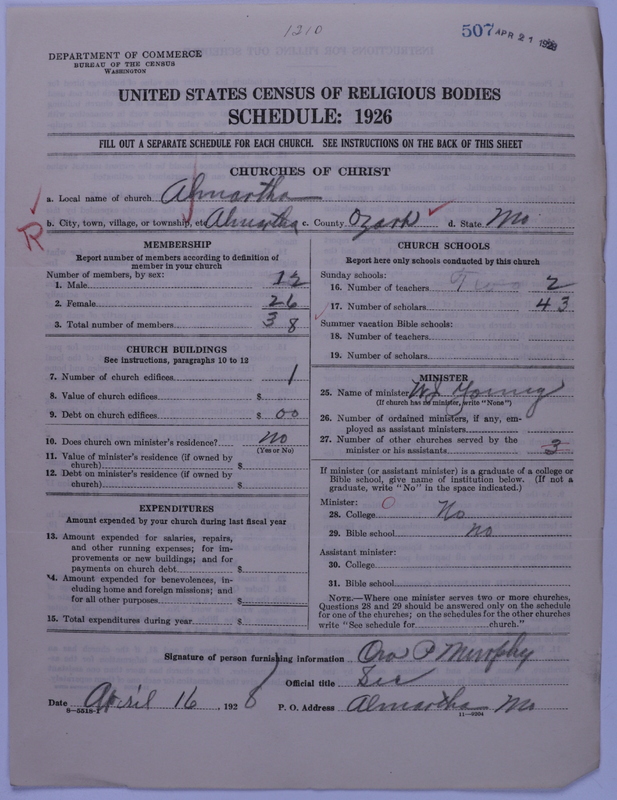 1210
507 APR 21 1928
DEPARTMENT OF COMMERCE
BUREAU OF THE CENSUS
WASHINGTON
UNITED STATES CENSUS OF RELIGIOUS BODIES
SCHEDULE: 1926
FILL OUT A SEPARATE SCHEDULE FOR EACH CHURCH. SEE INSTRUCTIONS ON THE BACK OF THIS SHEET
CHURCHES OF CHRIST
a. Local name of church Almartha
b. City, town, village, or township, etc Almartha c. County Ozark d. State Mo
R
MEMBERSHIP
Report number of members according to definition of
member in your church
Number of members, by sex:
1. Male 12
2. Female 26
3. Total number of members 38
CHURCH BUILDINGS
See instructions, paragraphs 10 to 12
7. Number of church edifices 1
8. Value of church edifices $
9. Debt on church edifices $ 00
10. Does church own minister's residence? No
(Yes or No)
11. Value of minister's residence (if owned by
church) $
12. Debt on minister's residence (if owned by
church) $
EXPENDITURES
Amount expended by your church during last fiscal year
13. Amount expended for salaries, repairs,
and other running expenses; for im-
provements or new buildings; and for
payments on church debt $
14. Amount expended for benevolences, in-
cluding home and foreign missions; and
for all other purposes $
15. Total expenditures during year $
CHURCH SCHOOLS
Report here only schools conducted by this church
Sunday schools:
16. Number of teachers Two 2
17. Number of scholars 43
Summer vacation Bible schools:
18. Number of teachers
19. Number of scholars
MINISTER
25. Name of minister W J Yourey
(If church has no minister, write "None")
26. Number of ordained ministers, if any, em-
ployed as assistant ministers
27. Number of other churches served by the
minister or his assistants 3
If minister (or assistant minister) is a graduate of a college or
Bible school, give name of institution below. (If not a
graduate, write "No" in the space indicated.)
Minister:
28. College No
29. Bible school no
Assistant minister:
30. College
31. Bible school
NOTE.—Where one minister serves two or more churches,
Questions 28 and 29 should be answered only on the schedule
for one of the churches; on the schedules for the other churches
write "See schedule for church."
Signature of person furnishing information Ora P Murphy
Official title Sec
Date April 16, 1928 P. O. Address Almartha Mo
8-5518-f 11-9204